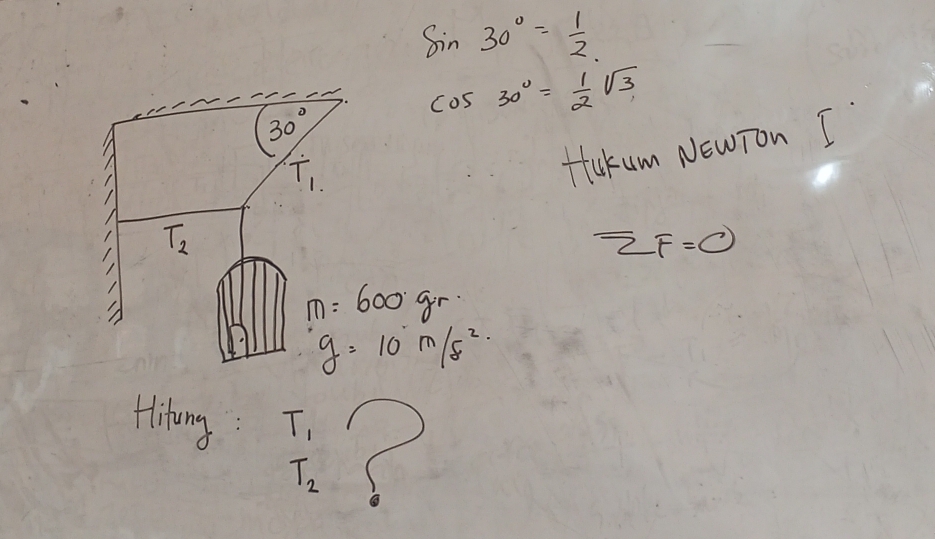 Sin 30° = 1/2.
cos 30° = 1/2 √3
Hukum NEWTON I
ΣF = 0
30°
T₁.
T₂
m = 600 gr.
g = 10 m/s².
Hitung : T₁ ?
T₂